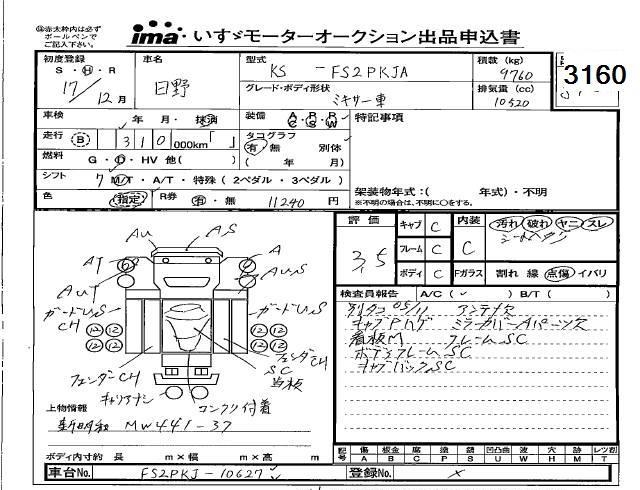 ㊟赤太枠内は必ず
ボールペンで
ご記入下さい。
ima・いすゞモーターオークション出品申込書
初度登録 車名 型式 積載(kg)
S・H・R 日野 KS - FS2PKJA 9760
17/12月 グレード・ボディ形状 排気量(cc)
ミキサー車 10520
3160
車検 年 月・抹消 装備 A・P・P C・S・W 特記事項
走行 B 310 000km タコグラフ
有・無 別体
燃料 G・D・HV 他( ) ( 年 月)
シフト 7 M/T・A/T・特殊(2ペダル・3ペダル) 架装物年式:( 年式)・不明
※不明の場合は、不明に○をする。
色 指定 R券 有・無 11240 円
評価 キャブ C 内装 汚れ・破れ・ヤニ・スレ
3.5 フレーム C C
ボディ C Fガラス 割れ 線 点傷・イバリ
AU AS
AT A
AUT AUS
ガードUS ガードUS
CH
フェンダーCH フェンダーCH
SC
当板
キャリアナシ コンクリ付着
検査員報告 A/C( ) B/T( )
別タコ 05/11 アンテナ欠
キャブPハゲ ミラーカバーAパーツ欠
看板M フレームSC
ボディフレームSC
キャブバックSC
上物情報
新明和 MW441-37
ボディ内寸約 長 m×幅 m×高 m
記号 傷 板金 腐 交換 塗 錆 凹凸曲 波 穴 跡 レツ削
A B C P S U W H M T
車台No. FS2PKJ-10627 登録No. ×